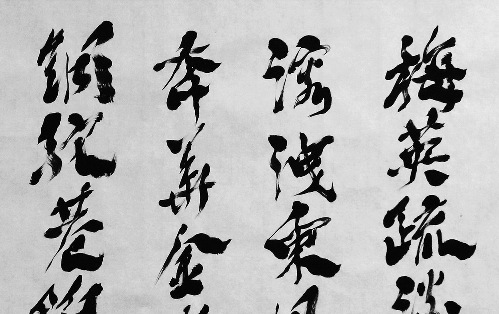 梅英疏淡
溶洩東
年華金
銅駝巷